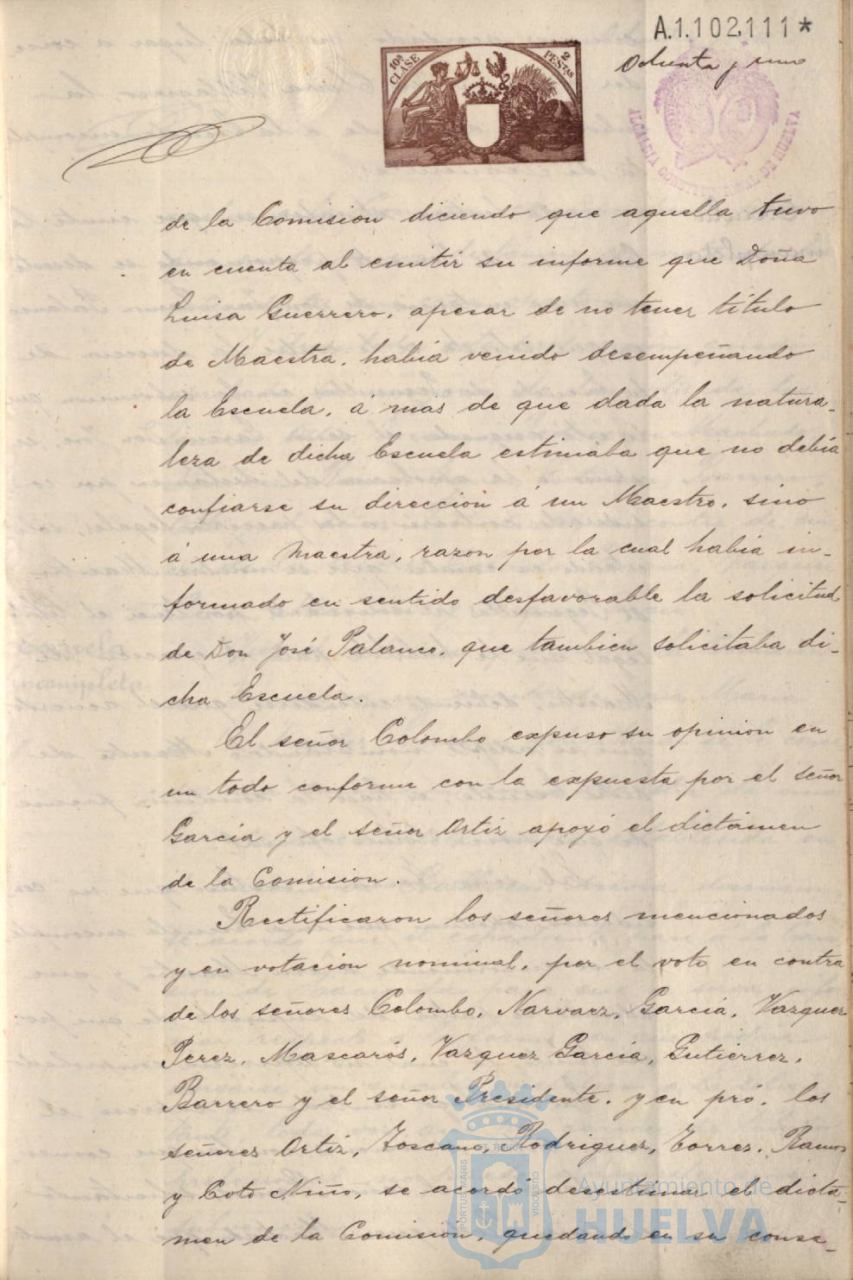 A.1.102,111*
Ochenta y uno
10ª CLASE
2 PESETAS
ALCALDIA CONSTITUCIONAL DE HUELVA
de la Comision diciendo que aquella tuvo
en cuenta al emitir su informe que Doña
Luisa Guerrero, apesar de no tener titulo
de Maestra, había venido desempeñando
la Escuela, á mas de que dada la natura-
leza de dicha Escuela estimaba que no debía
confiarse su direccion á un Maestro, sino
á una Maestra, razon por la cual había in-
formado en sentido desfavorable la solicitud
de Don José Palanco, que tambien solicitaba di-
cha Escuela.
El señor Colombo expuso su opinion en
un todo conforme con la expuesta por el señor
García y el señor Ortiz apoyó el dictámen
de la Comision.
Rectificaron los señores mencionados
y en votacion nominal, por el voto en contra
de los señores Colombo, Narvaez, García, Vazquez
Perez, Mascarós, Vazquez García, Gutierrez,
Barrero y el señor Presidente, y en pró, los
señores Ortiz, Toscano, Rodriguez, Torres, Ramos
y Coto Niño, se acordó desestimar el dictá-
men de la Comision, quedando en su conse-
Ayuntamiento de
HUELVA